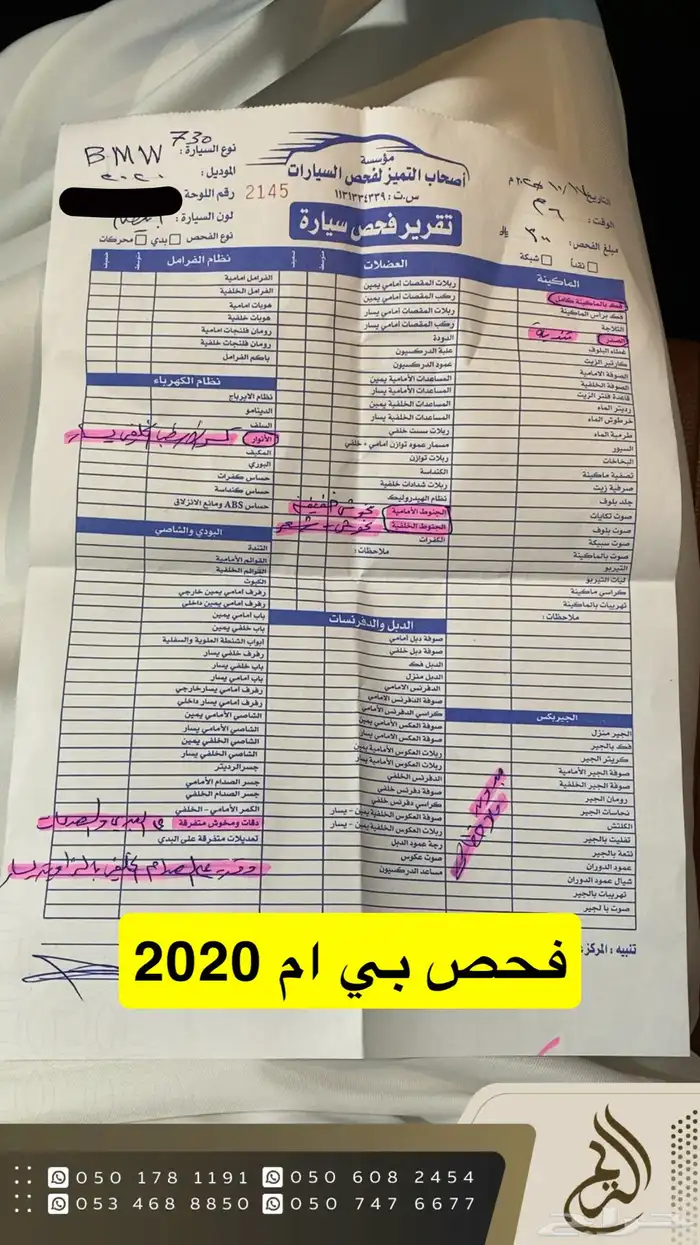 مؤسسة
أصحاب التميز لفحص السيارات
س.ت : ١١٣١٣٣٤٣٣٩
تقرير فحص سيارة
2145
نوع السيارة : BMW 730
الموديل : ٢٠٢٠
رقم اللوحة
لون السيارة :
نوع الفحص بدي محركات
التاريخ
الوقت :
مبلغ الفحص :
نقداً شبكة
الماكينة
فك بالماكينة كامل
فك براس الماكينة
الثلاجة
الصدر
غطاء البلوف
كارتير الزيت
الصوفة الامامية
الصوفة الخلفية
قاعدة فلتر الزيت
رديتر الماء
خرطوش الماء
طرمبة الماء
السيور
البخاخات
تصفية ماكينة
صرفية زيت
جلد بلوف
صوت تكايات
صوت بلوف
صوت سبيكة
صوت بالماكينة
التيربو
ليات التيربو
كراسي ماكينة
تهريبات بالماكينة
ملاحظات :
الجيربكس
الجير منزل
فك بالجير
كريتر الجير
صوفة الجير الأمامية
صوفة الجير الخلفية
رومان الجير
نحاسات الجير
الكلتش
تفليت بالجير
نتعة بالجير
عمود الدوران
شيال عمود الدوران
تهريبات بالجير
صوت با لجير
العضلات
ربلات المقصات امامي يمين
ركب المقصات امامي يمين
ربلات المقصات امامي يسار
ركب المقصات امامي يسار
الدودة
علبة الدركسيون
عمود الدركسيون
المساعدات الأمامية يمين
المساعدات الأمامية يسار
المساعدات الخلفية يمين
المساعدات الخلفية يسار
ربلات سست خلفي
مسمار عمود توازن امامي + خلفي
ربلات توازن
الكنداسة
ربلات شدادات خلفية
نظام الهيدروليك
الجنوط الأمامية
الجنوط الخلفية
الكفرات
ملاحظات :
الدبل والدفرنسات
صوفة دبل امامي
صوفة دبل خلفي
الدبل فك
الدبل منزل
الدفرنس الامامي
صوفة الدفرنس الامامي
كراسي الدفرنس الأمامي
صوفة العكس الأمامي يمين
صوفة العكس الامامي يسار
ربلات العكوس الأمامية يمين
ربلات العكوس الأمامية يسار
الدفرنس الخلفي
صوفة دفرنس خلفي
كراسي دفرنس خلفي
صوفة العكوس الخلفية يمين - يسار
ربلات العكوس الخلفية يمين - يسار
رجة عمود الدبل
صوت عكوس
مساعد الدركسيون
نظام الفرامل
الفرامل امامية
الفرامل الخلفية
هوبات امامية
هوبات خلفية
رومان فلنجات امامية
رومان فلنجات خلفية
باكم الفرامل
نظام الكهرباء
نظام الايرباج
الدينامو
السلف
الأنوار
المكيف
البوري
حساس كفرات
حساس كنداسة
حساس ABS ومانع الانزلاق
البودي والشاصي
القوائم الأمامية
القوائم الخلفية
الكبوت
رفرف امامي يمين خارجي
رفرف امامي يمين داخلي
باب امامي يمين
باب خلفي يمين
ابواب الشنطة العلوية والسفلية
رفرف خلفي يسار
باب خلفي يسار
باب امامي يسار
رفرف امامي يسار خارجي
رفرف امامي يسار داخلي
الشاصي الأمامي يمين
الشاصي الأمامي يسار
الشاصي الخلفي يمين
الشاصي الخلفي يسار
جسر الرديتر
جسر الصدام الأمامي
جسر الصدام الخلفي
الكمر الأمامي - الخلفي
دقات ومخوش متفرقة
تعديلات متفرقة على البدي
تنبيه : المركز
فحص بي ام 2020
050 178 1191
050 608 2454
053 468 8850
050 747 6677